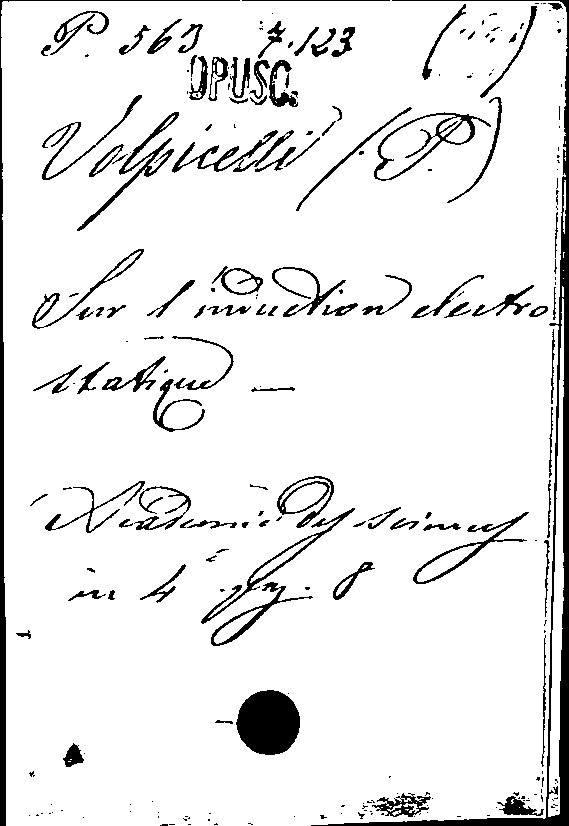 P. 563 7.123
OPUSC.
Volpicelli (P.)
Sur l'induction electro
statique —
Academie des sciences
in 4° pag. 8